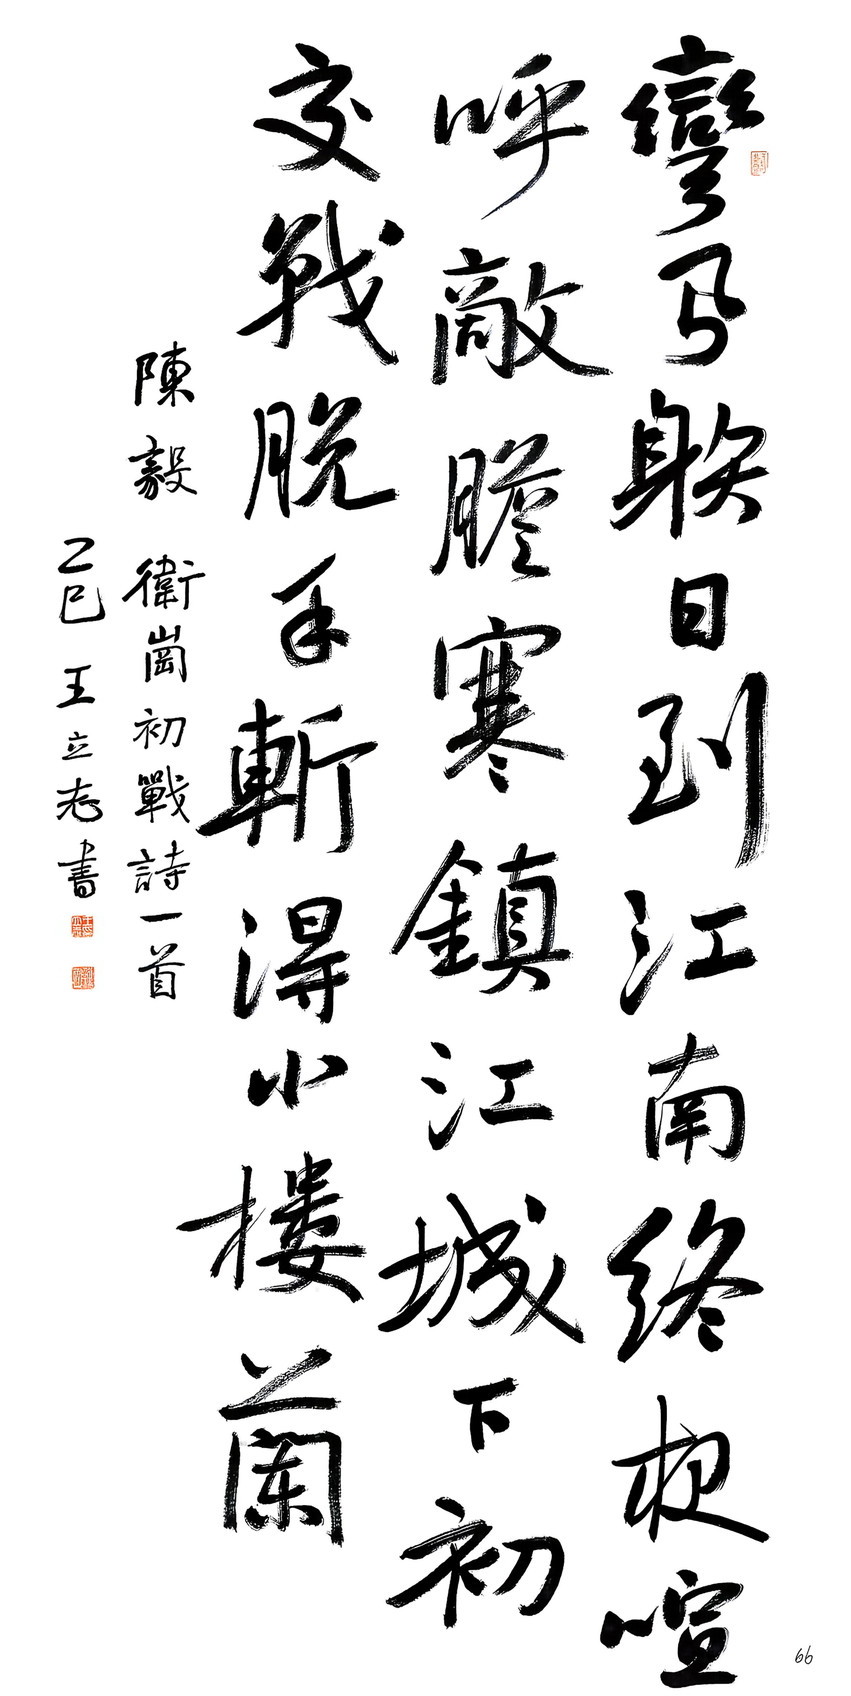 彎弓䠶日到江南終夜喧
呼敵膽寒鎮江城下初
交戰脫手斬得小樓蘭
陳毅 衛崗初戰詩一首
乙巳 王立志書
66